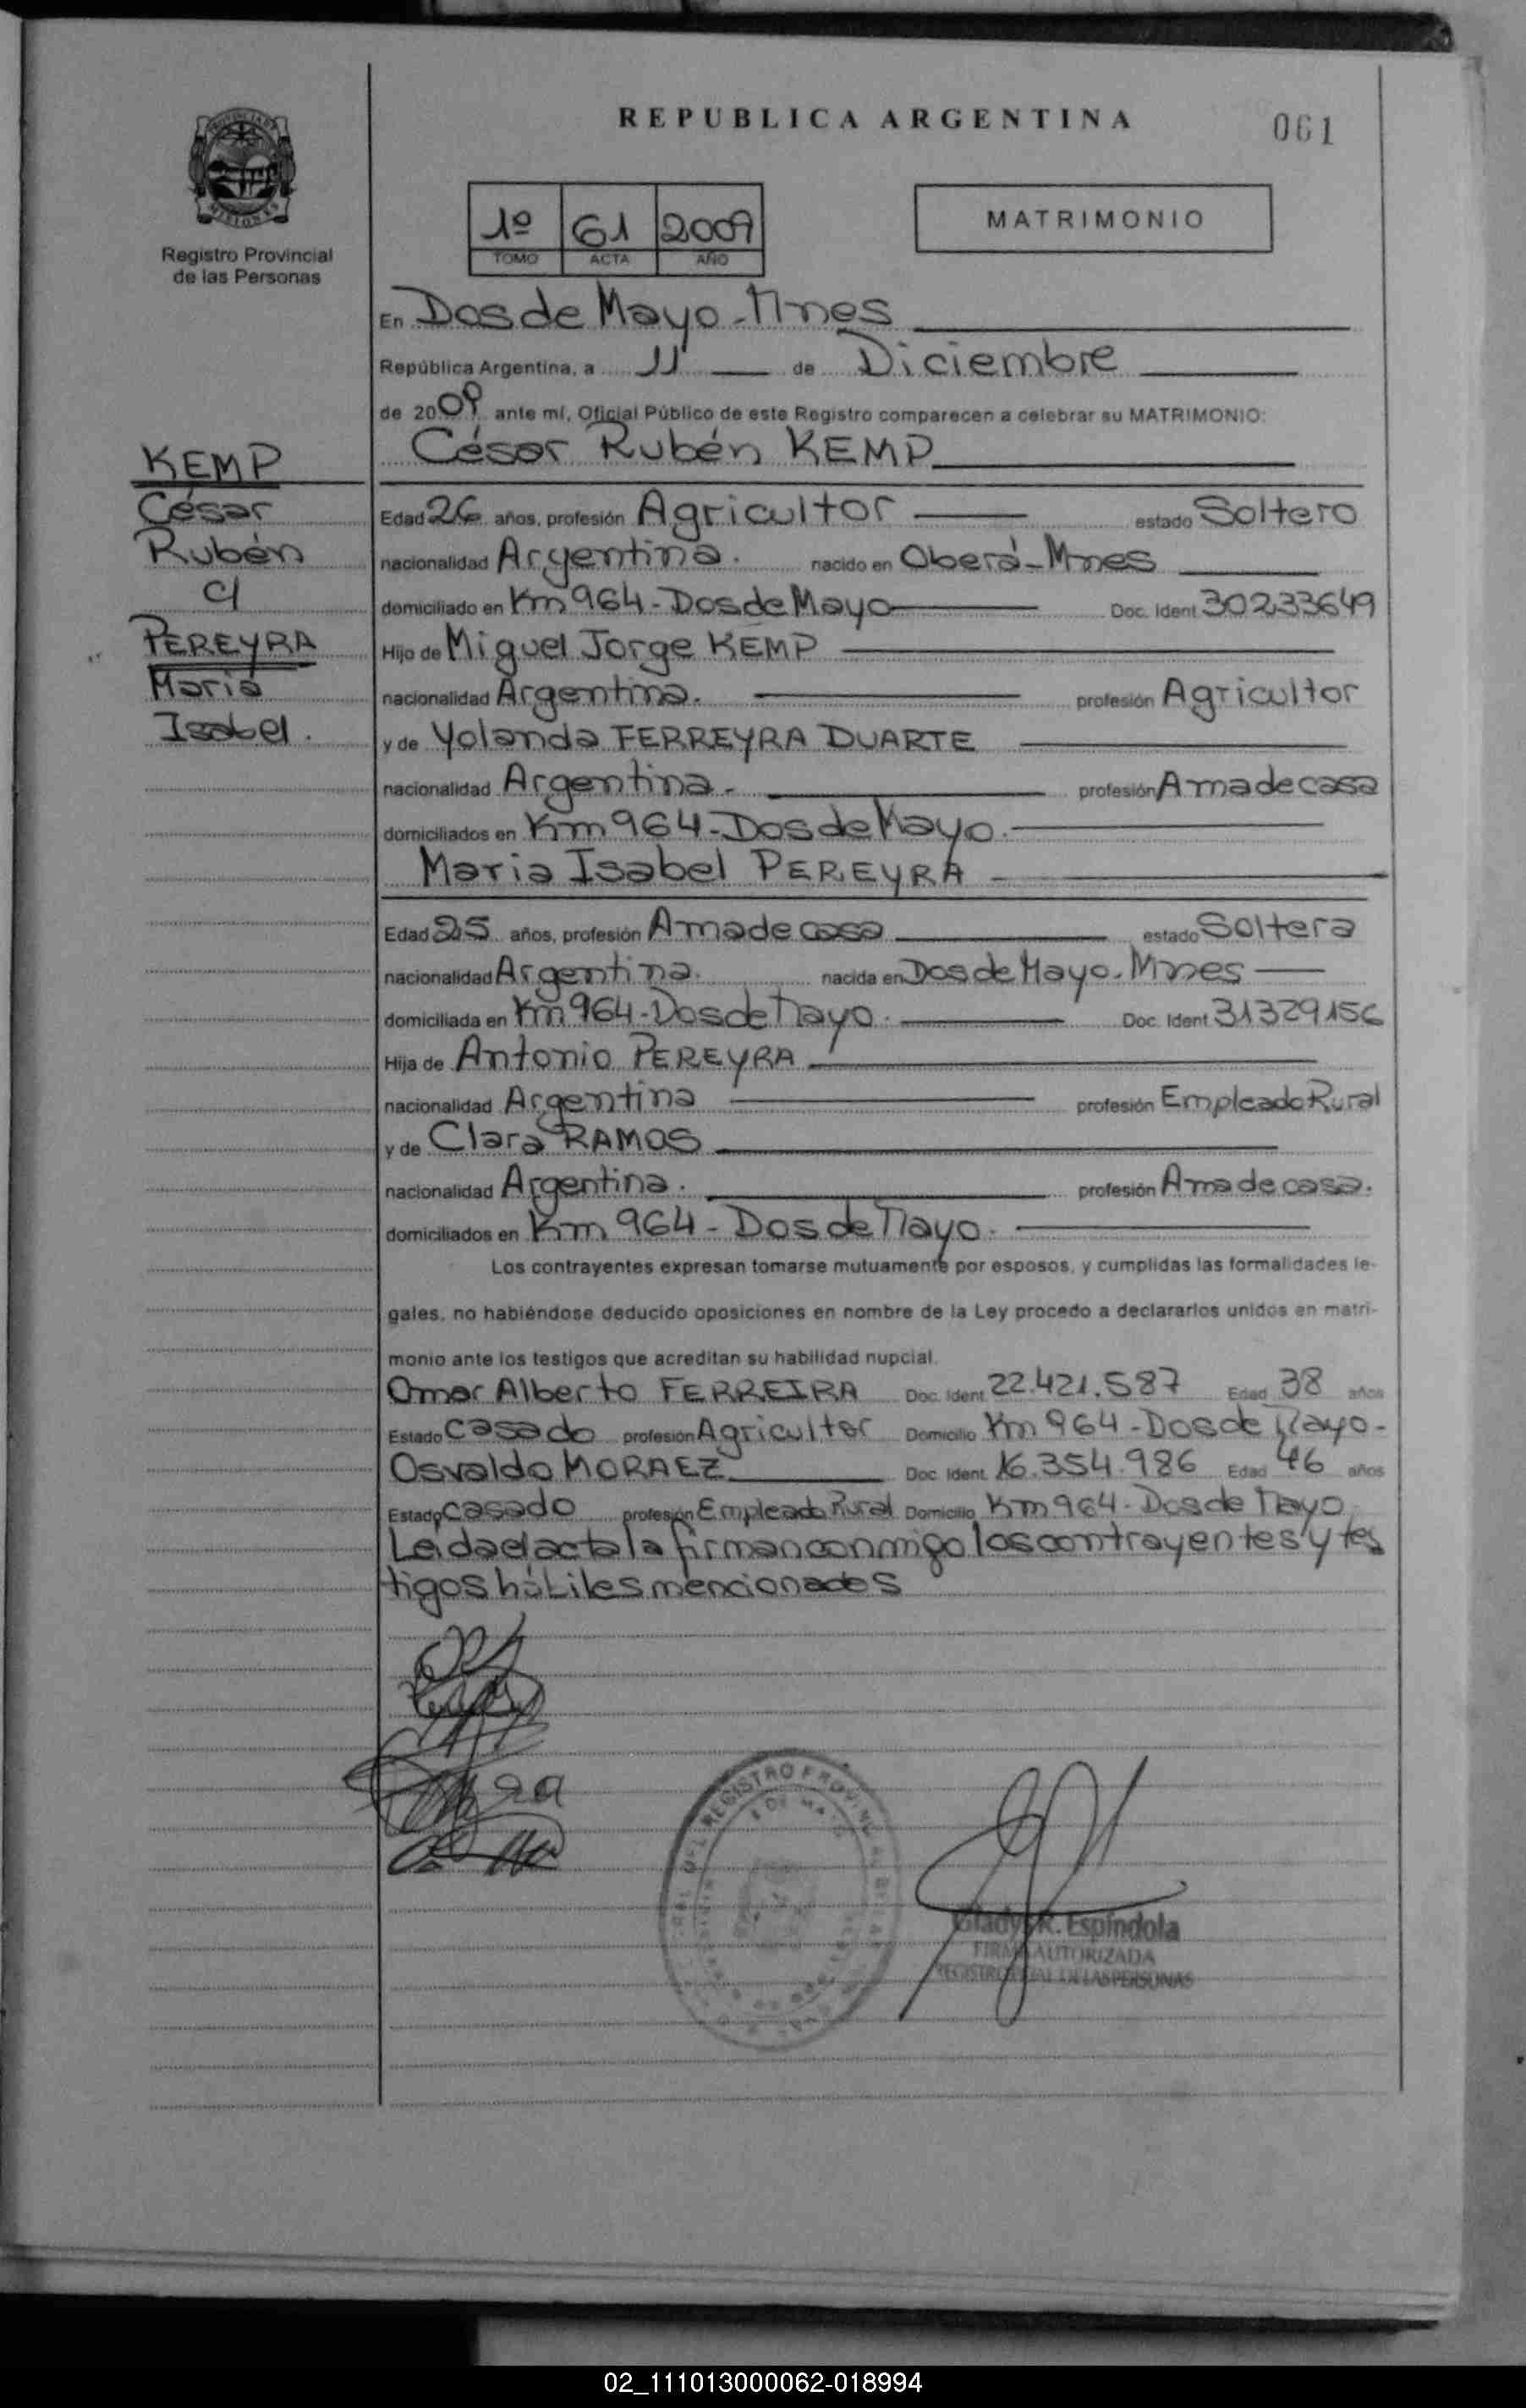 REPUBLICA ARGENTINA
061
Registro Provincial
de las Personas
1º 61 2009
TOMO ACTA AÑO
MATRIMONIO
En Dos de Mayo - Mnes
República Argentina, a 11 de Diciembre
de 2009 ante mí, Oficial Público de este Registro comparecen a celebrar su MATRIMONIO:
César Rubén KEMP
KEMP
César
Rubén
c/
PEREYRA
Maria
Isabel.
Edad 26 años, profesión Agricultor estado Soltero
nacionalidad Argentina. nacido en Oberá - Mnes
domiciliado en Km 964 - Dos de Mayo Doc. Ident 30233649
Hijo de Miguel Jorge KEMP
nacionalidad Argentina. profesión Agricultor
y de Yolanda FERREYRA DUARTE
nacionalidad Argentina. profesión Ama de casa
domiciliados en Km 964 - Dos de Mayo.
Maria Isabel PEREYRA
Edad 25 años, profesión Ama de casa estado Soltera
nacionalidad Argentina. nacida en Dos de Mayo. Mnes
domiciliada en Km 964 - Dos de Mayo. Doc. Ident 31329156
Hija de Antonio PEREYRA
nacionalidad Argentina profesión Empleado Rural
y de Clara RAMOS
nacionalidad Argentina. profesión Ama de casa.
domiciliados en Km 964 - Dos de Mayo.
Los contrayentes expresan tomarse mutuamente por esposos, y cumplidas las formalidades le-
gales, no habiéndose deducido oposiciones en nombre de la Ley procedo a declararlos unidos en matri-
monio ante los testigos que acreditan su habilidad nupcial.
Omar Alberto FERREIRA Doc. Ident. 22.421.587 Edad 38 años
Estado Casado profesión Agricultor Domicilio Km 964 - Dos de Mayo -
Osvaldo MORAEZ Doc. Ident. 16.354.986 Edad 46 años
Estado casado profesión Empleado Rural Domicilio Km 964 - Dos de Mayo
Leida el acta la firman conmigo los contrayentes y tes
tigos hábiles mencionados
Gladys R. Espíndola
FIRMA AUTORIZADA
DE LAS PERSONAS
02_111013000062-018994